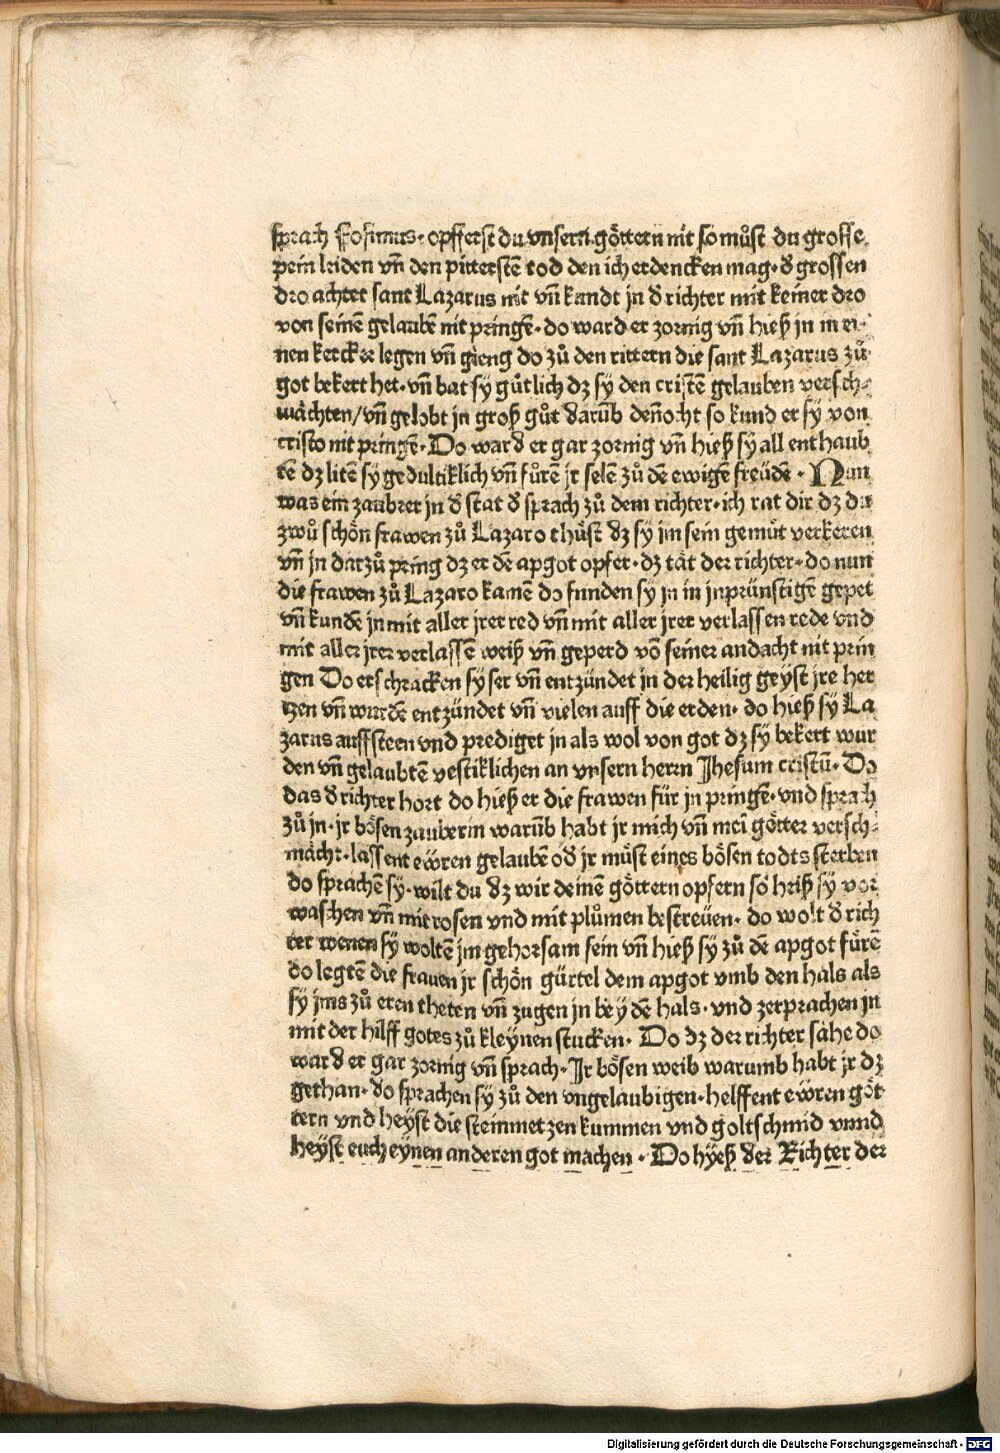 sprach Fosimus· opfferst du vnsern göttern nit so můst du grosse
pein leiden vn̄ den pitterstē tod den ich erdencken mag· d̕ grossen
dro achtet sant Lazarus nit vn̄ kundt jn d̕ richter mit keiner dro
von seinē gelaubē nit pringē· do ward er zornig vn̄ hieß jn in ei-
nen kercker legen vn̄ gieng do zů den rittern die sant Lazarus zů
got bekert het· vn̄ bat sy gůtlich dz sy den cristē gelauben versch-
mächten/ vn̄ gelobt jn groß gůt darūb den̄ocht so kund er sy von
cristo nit pringē· Do ward er gar zornig vn̄ hieß sy all enthaub
tē dz litē sy gedultiklich vn̄ fůrē jr selē zů dē ewigē freüdē· Nun
was ein zaubrer in d̕ stat d̕ sprach zů dem richter· ich rat dir dz du
zwů schön frawen zů Lazaro thůst dz sy im sein gemüt verkeren
vn̄ jn darzů pring dz er dē apgot opfer· dz tät der richter· do nun
die frawen zů Lazaro kamē do funden sy jn in jnprünstigē gepet
vn̄ kundē jn mit aller jrer red vn̄ mit aller jrer verlassen rede vnd
mit aller jrer verlassē weiß vn̄ geperd vō seiner andacht nit prin
gen Do erschracken sy ser vn̄ entzündet in der heilig geyst jre her
tzen vn̄ wurdē entzündet vn̄ vielen auff die erden· do hieß sy La
zarus auffsteen vnd prediget jn als wol von got dz sy bekert wur
den vn̄ gelaubtē vestiklichen an vnsern herrn Jhesum cristū· Do
das d̕ richter hort do hieß er die frawen für jn pringē· vnd sprach
zů jn· jr bösen zauberin warūb habt jr mich vn̄ mei götter versch-
mächt· lassent ewren gelaubē od̕ jr můst eines bösen todts sterben
do sprachē sy· wilt du dz wir deinē göttern opfern so heiß sy vor
waschen vn̄ mit rosen vnd mit plůmen bestreüen· do wolt d̕ rich
ter wenen sy woltē jm gehorsam sein vn̄ hieß sy zů dē apgot fürē
do legtē die frauen jr schön gürtel dem apgot vmb den hals als
sy jms zů eren theten vn̄ zugen jn bey dē hals· vnd zerprachen jn
mit der hilff gotes zů kleynen stucken· Do dz der richter sahe do
ward er gar zornig vn̄ sprach· Jr bösen weib warumb habt jr dz
gethan· do sprachen sy zů den vngelaubigen· helffent ewren göt
tern vnd heyst die steinmetzen kummen vnd goltschmid vnnd
heyst euch eynen anderen got machen· Do hyeß der Richter der
Digitalisierung gefördert durch die Deutsche Forschungsgemeinschaft - DFG